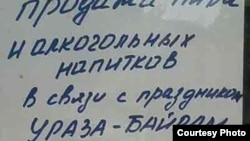 продажа пива
и алкогольных
напитков
в связи с праздником
УРАЗА-БАЙРАМ
Courtesy Photo